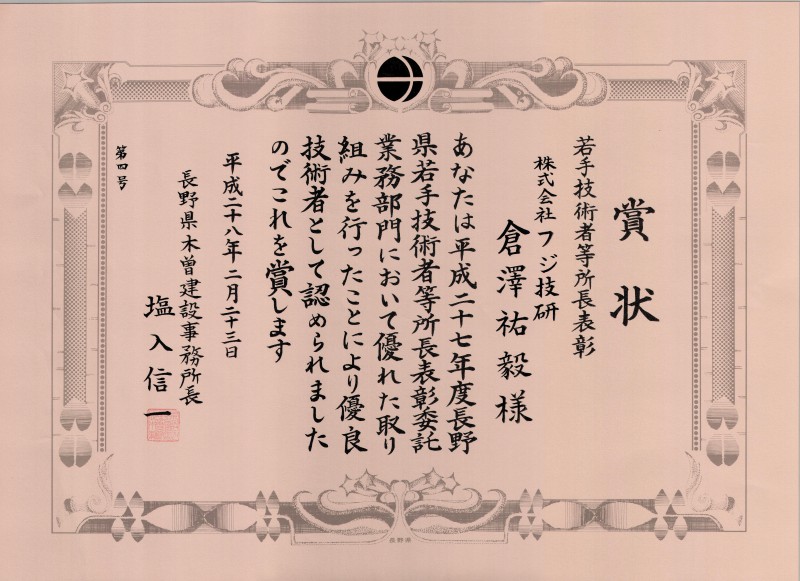 賞状
若手技術者等所長表彰
株式会社フジ技研
倉澤祐毅様
あなたは平成二十七年度長野
県若手技術者等所長表彰委託
業務部門において優れた取り
組みを行ったことにより優良
技術者として認められました
のでこれを賞します
平成二十八年二月二十三日
長野県木曽建設事務所長
塩入信一
第四号
長野県